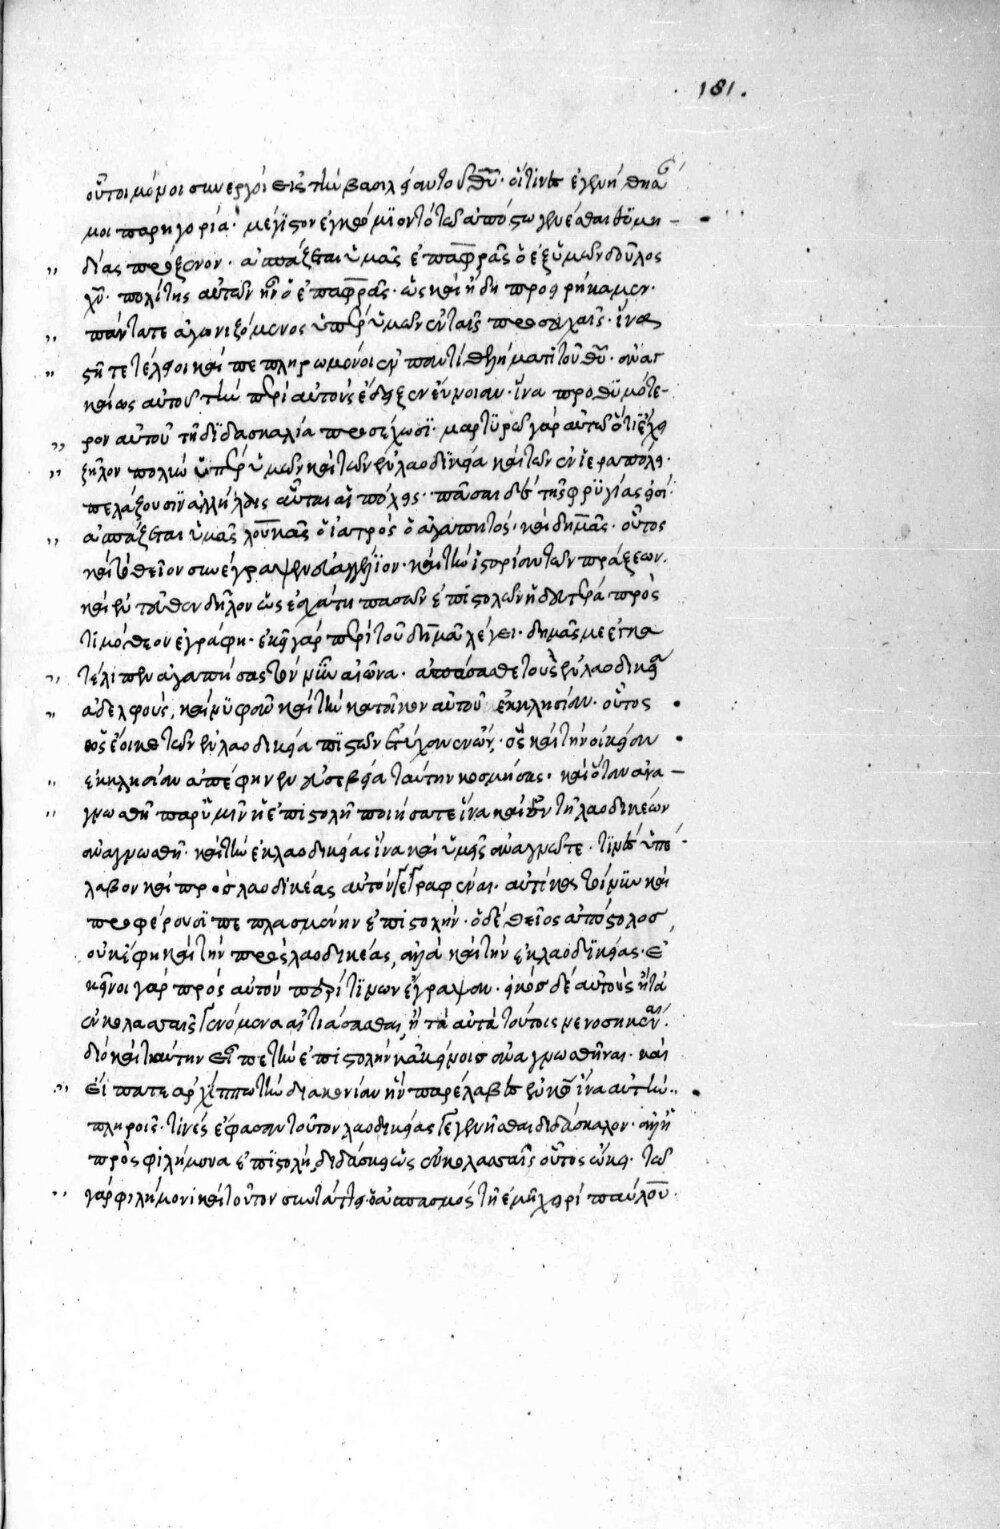 181.
οὗτοι μόνοι συνεργοὶ εἰς τὴν βασιλείαν τοῦ θῦ· οἵτινες ἐγενήθησάν
μοι παρηγορία· μέγιστον ἐγκώμιον τὸ τῷ ἀποστόλῳ γενέσθαι θυμη-
δίας πρόξενον· ἀσπάζεται ὑμᾶς ἐπαφρᾶς ὁ ἐξ ὑμῶν δοῦλος
χῦ· πολίτης αὐτῶν ἦν ὁ ἐπαφρᾶς· ὡς καὶ ἤδη προειρήκαμεν·
πάντοτε ἀγωνιζόμενος ὑπὲρ ὑμῶν ἐν ταῖς προσευχαῖς· ἵνα
στῆτε τέλειοι καὶ πεπληρωμένοι ἐν παντὶ θελήματι τοῦ θῦ·
καὶ ὡς αὐτοῦ τὴν περὶ αὐτοὺς ἔδειξεν εὔνοιαν· ἵνα προθυμότε-
ρον αὐτοῦ τῇ διδασκαλία προσέχωσι· μαρτυρῶ γὰρ αὐτῶ ὅτι ἔχει
ζῆλον πολὺν ὑπὲρ ὑμῶν καὶ τῶν ἐν λαοδικεία καὶ τῶν ἐν ἱεραπόλει·
πελάζουσιν ἀλλήλαις αὗται αἱ πόλεις· πᾶσαι δὲ τῆς φρυγίας εἰσί·
ἀσπάζεται ὑμᾶς λουκᾶς ὁ ἰατρὸς ὁ ἀγαπητός· καὶ δημᾶς· οὗτος
καὶ τὸ θεῖον συνέγραψεν εὐαγγέλιον· καὶ τὴν ἱστορίαν τῶν πράξεων·
καὶ ἐντεῦθεν δῆλον ὡς ἐσχάτη πασῶν ἐπιστολῶν ἡ δευτέρα πρὸς
τιμόθεον ἐγράφη· ἐκεῖ γὰρ περὶ τοῦ δημᾶ λέγει· δημᾶς με ἐγκα
τέλιπεν ἀγαπήσας τὸν νῦν αἰῶνα· ἀσπάσασθε τοὺς ἐν λαοδικεία
ἀδελφούς, καὶ νυμφᾶν καὶ τὴν κατοῖκον αὐτοῦ ἐκκλησίαν· οὗτος
ὡς ἔοικε τῶν ἐν λαοδικεία πιστῶν· ὃς καὶ τὴν οἰκείαν
ἐκκλησίαν ἀπέφηνεν εὐσεβεία ταύτην κοσμήσας· καὶ ὅταν ἀνα-
γνωσθῆ παρ' ὑμῖν ἡ ἐπιστολὴ ποιήσατε ἵνα καὶ ἐν τῆ λαοδικέων
ἀναγνωσθῆ· καὶ τὴν ἐκ λαοδικείας ἵνα καὶ ὑμεῖς ἀναγνῶτε· τινὲς ὑπέ-
λαβον καὶ πρὸς λαοδικέας αὐτὸν γεγραφέναι· αὐτίκα τοίνυν καὶ
προφέρουσι πεπλασμένην ἐπιστολήν· ὁ δὲ θεῖος ἀπόστολος
οὐκ ἔφη καὶ τὴν πρὸς λαοδικέας, ἀλλὰ καὶ τὴν ἐκ λαοδικείας· ἐ
κεῖνοι γὰρ πρὸς αὐτὸν περὶ τίνων ἔγραψαν· εἰκὸς δὲ αὐτοὺς ἢ τὰ
ἐν κολασσαῖς γενόμενα αἰτιάσασθαι, ἢ τὰ αὐτὰ τούτοις νενοσηκέναι·
διὸ καὶ ταύτην εἶπε τὴν ἐπιστολὴν κἀκείνοις ἀναγνωσθῆναι· καὶ
εἴπατε ἀρχίππω τὴν διακονίαν ἣν παρέλαβες ἐν κῶ ἵνα αὐτὴν
πληροῖς· τινὲς ἔφασαν τοῦτον λαοδικείας γεγενῆσθαι διδάσκαλον· ἀλλ' ἡ
πρὸς φιλήμονα ἐπιστολὴ, διδάσκει ὡς ἐν κολασσαῖς οὗτος ὤκει· τῶ
γὰρ φιλήμονι καὶ τοῦτον συντάττει· ὁ ἀσπασμὸς τῆ ἐμῆ χειρὶ παύλου·